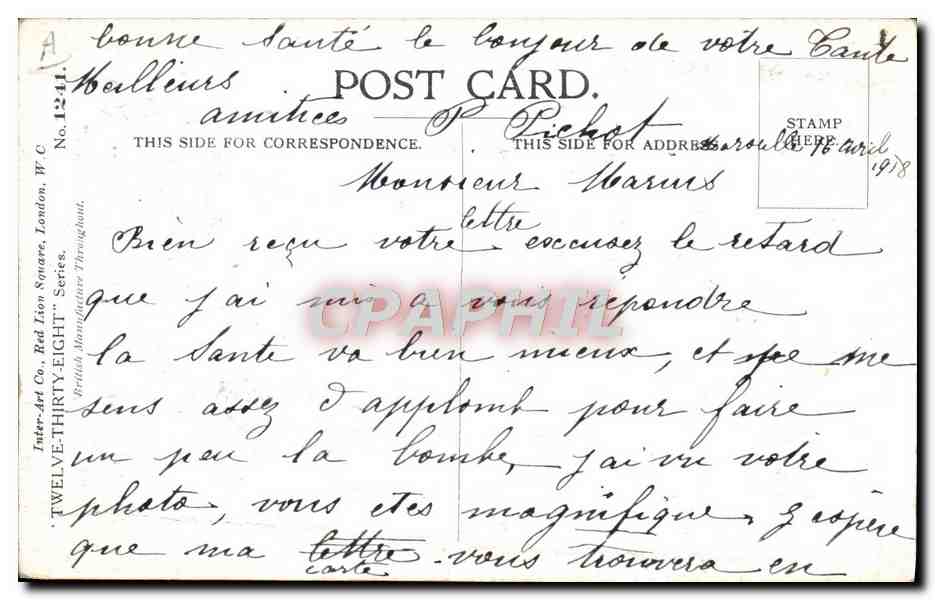 bonne santé le bonjour de votre Tante
Meilleurs
amitiees P Pichot
POST CARD.
THIS SIDE FOR CORRESPONDENCE.
THIS SIDE FOR ADDRESS
STAMP
HERE.
Marseille 16 avril
1918
Monsieur Marius
lettre
Bien reçu votre excusez le retard
que j'ai mis a vous répondre
la santé va bien mieux, et je me
sens assez d'applomb pour faire
un peu la bombe, j'ai vu votre
photo, vous etes magnifique, j'espère
que ma lettre vous trouvera en
carte
A
Inter-Art Co., Red Lion Square, London, W.C
"TWELVE-THIRTY-EIGHT" Series. No. 1241.
British Manufacture Throughout.
CPAPHIL